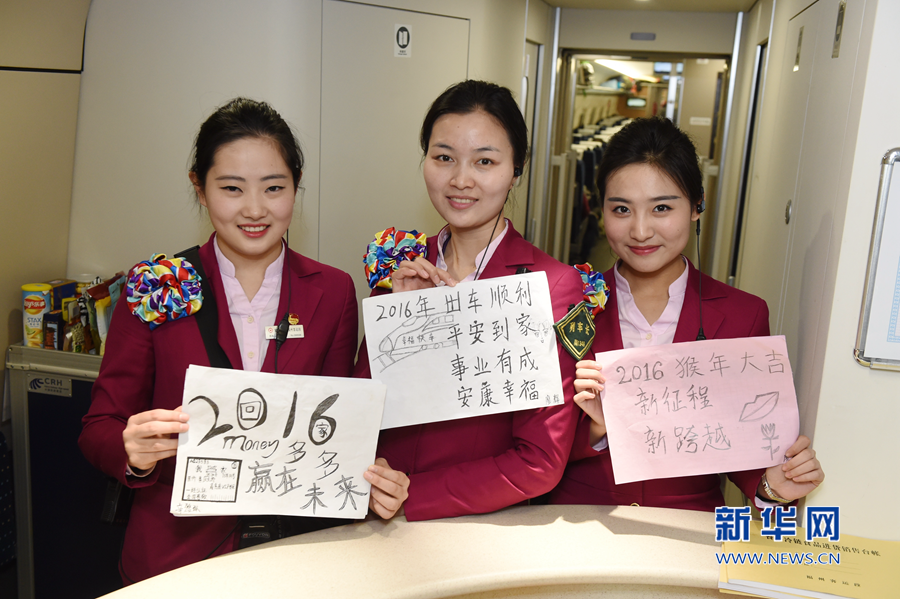 2016
回
家
money多多
赢在
未来
2016年 出车顺利
平安到家
事业有成
安康幸福
2016 猴年大吉
新征程
新跨越
列车长
CRH
STAX
新华网
WWW.NEWS.CN